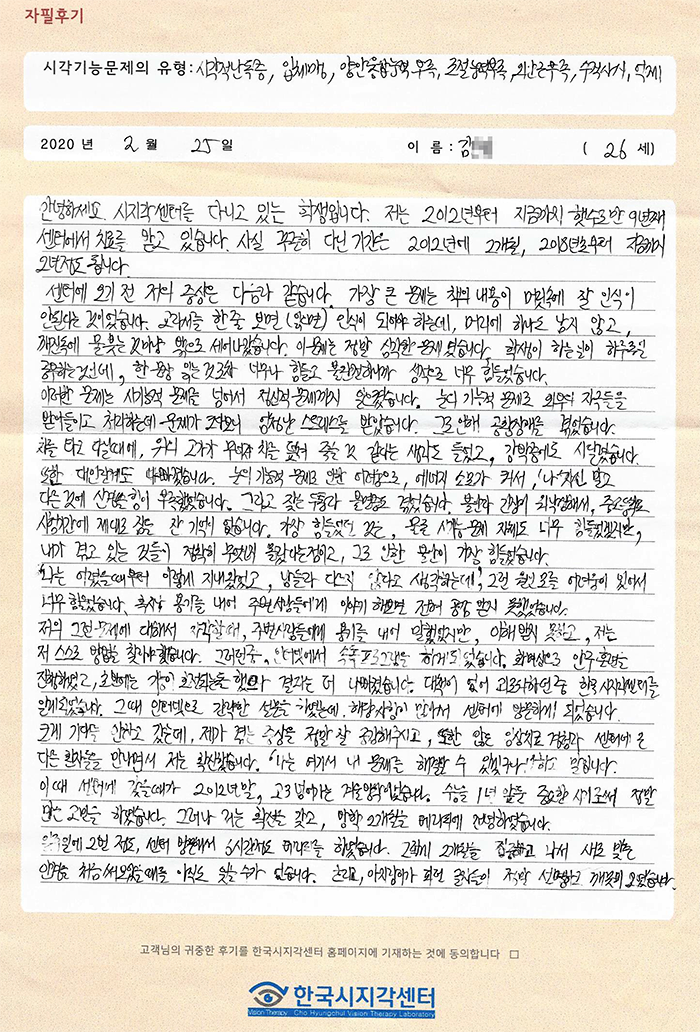 자필후기
시각기능문제의 유형: 시각적난독증, 입체맹, 양안융합능력 부족, 조절능력부족, 외안근부족, 수직사시, 억제
2020 년 2 월 25 일 이 름 : 김 ( 26 세)
안녕하세요. 시지각센터를 다니고 있는 학생입니다. 저는 2012년부터 지금까지 햇수로만 9년째
센터에서 치료를 받고 있습니다. 사실 꾸준히 다닌 기간은 2012년에 2개월, 2018년초부터 지금까지
2년정도 됩니다.
센터에 오기 전 저의 증상은 다음과 같습니다. 가장 큰 문제는 책의 내용이 머릿속에 잘 인식이
안된다는 것이었습니다. 교과서를 한줄 보면 (읽으면) 인식이 되어야 하는데, 머리에 하나도 남지 않고,
깨진독에 물 붓는 것마냥 밖으로 세어나갔습니다. 이 문제는 정말 심각한 문제였습니다. 학생이 하는일이 하루종일
공부하는것인데, 한 문장 읽는 것조차 너무나 힘들고 불편하니까 생적으로 너무 힘들었습니다.
이러한 문제는 시기능적 문제를 넘어서 정신적 문제까지 왔습니다. 눈의 기능적 문제로 외부의 자극들을
받아들이고 처리하는데 문제가 생겨 엄청난 스트레스를 받았습니다. 그로인해 공황장애를 겪었습니다.
차를 타고 다닐때에, 위의 고가가 무너져 차를 덮쳐 죽을 것 같다는 생각도 들었고, 강박증에도 시달렸습니다.
또한 대인관계도 나빠졌습니다. 눈의 기능적 문제로 인한 어려움으로, 에너지 소모가 커서, '나' 자신 말고
다른것에 신경쓸 힘이 부족했습니다. 그리고 잦은 두통과 불면증도 겪었습니다. 불안과 긴장이
시절기간에 제대로 잠을 잔 기억이 없습니다. 가장 힘들었던 것은, 물론 시기능 문제 자체도 너무 힘들었겠지만,
내가 겪고 있는 것들이 정확히 무엇인지 몰랐다는점이고, 그로 인한 불안이 가장 힘들었습니다.
'나는 어렸을때부터 이렇게 지내왔었고, 남들과 다르지 않다고 생각하는데', 그런
너무 힘들었습니다. 혹시나 용기를 내어 주변사람들에게 이야기 해보면 전혀 공감 받지 못했었습니다.
저의 그런 문제에 대해서 자각할때, 주변사람들에게 용기를 내어 말했었지만, 이해받지 못하고, 저는
저 스스로 방법을 찾아야했습니다. 그러던중, 인터넷에서 속독프로그램을 하게되었습니다. 화면상으로 안구훈련을
진행하였고, 초반에는 결과는 더 나빠졌습니다. 대책이 없어 괴로워하던 중 한국시지각센터를
알게되었습니다. 그때 인터넷으로 간략한 설문을 하였는데 해당사항이 많아서 센터에 방문하게 되었습니다.
크게 기대를 안하고 갔는데, 제가 겪는 증상을 정말 잘 공감해주시고, 또한 많은 임상치료 경험과 센터에 온
다른 환자들을 만나면서 저는 확신했습니다. '나는 여기서 내 문제를 해결할 수 있겠구나!' 하고 말입니다.
이때 센터에 갔을때가 2012년말, 고3 넘어가는 겨울방학이었습니다. 수능을 1년 앞둔 중요한 시기로써 정말
많은 고민을 하였습니다. 그러나 저는 확신을 갖고, 방학 2개월을 테라피에 전념하였습니다.
일주일에 2번 정도, 센터 방문해서 6시간정도 테라피를 하였습니다. 그렇게 2개월을 집중하고 나서 새로 맞춘
안경을 처음 써보았을때를 아직도 잊을 수가 없습니다. 흔들리고, 아지랑이가 피던 글자들이 정말 선명하고 깨끗히 보였습니다.
고객님의 귀중한 후기를 한국시지각센터 홈페이지에 기재하는 것에 동의합니다 □
한국시지각센터
Vision Therapy Cho Hyungchul Vision Therapy Laboratory